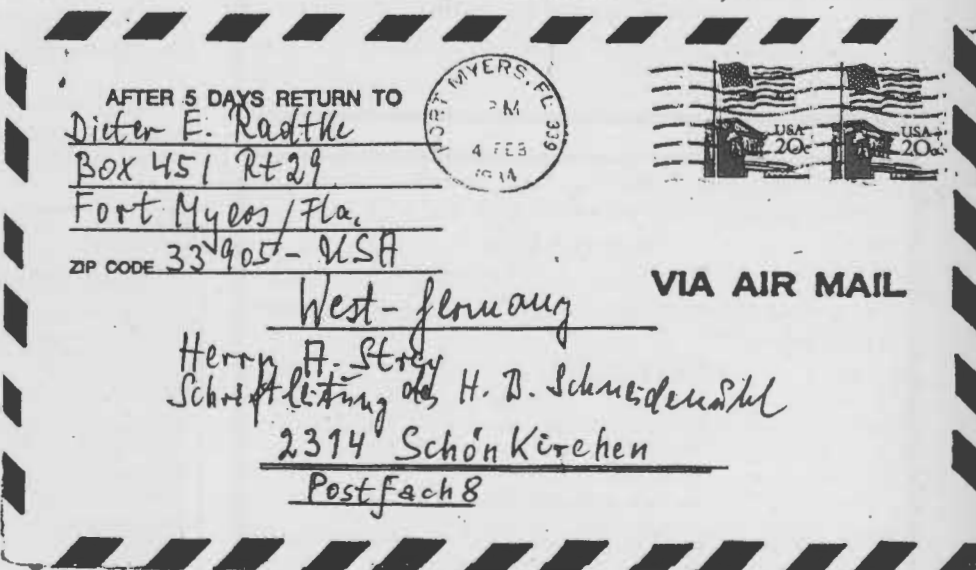 AFTER 5 DAYS RETURN TO
Dieter E. Radtke
Box 451 Rt 29
Fort Myers/Fla.
ZIP CODE 33905 - USA
FORT MYERS, FL 339
PM
4 FEB
USA
20c
USA
20c
VIA AIR MAIL
West-Germany
Herrn A. Strey
Schriftleitung des H. B. Schneidemühl
2314 Schönkirchen
Postfach 8